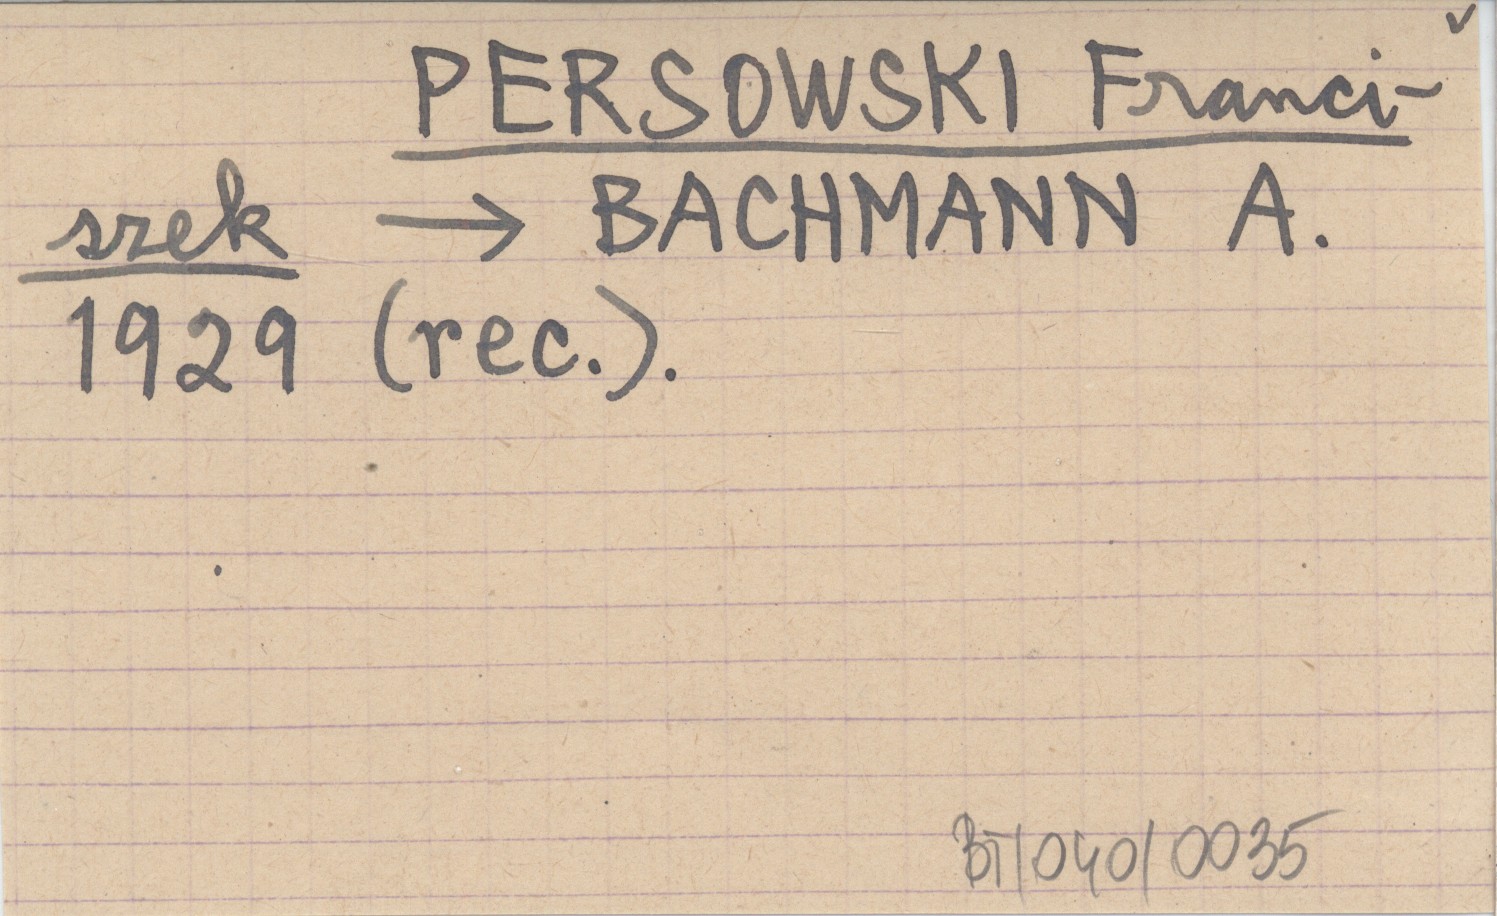 PERSOWSKI Franci-
szek → BACHMANN A.
1929 (rec.).
BT/040/0035